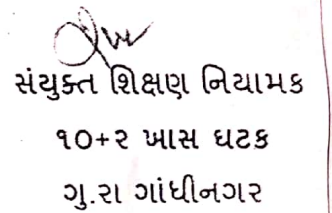 સંયુક્ત શિક્ષણ નિયામક
૧૦+૨ ખાસ ઘટક
ગુ.રા ગાંધીનગર